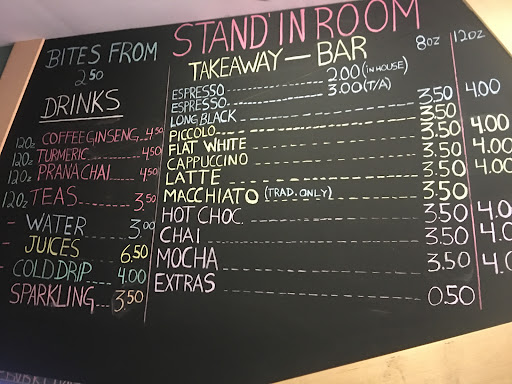 STAND'IN ROOM
TAKEAWAY — BAR
8oz 12oz
ESPRESSO 2.00 (IN HOUSE)
ESPRESSO 3.00 (T/A)
LONG BLACK 3.50 4.00
PICCOLO 3.50
FLAT WHITE 3.50 4.00
CAPPUCCINO 3.50 4.00
LATTE 3.50 4.00
MACCHIATO (TRAD. ONLY) 3.50
HOT CHOC. 3.50 4.0
CHAI 3.50 4.0
MOCHA 3.50 4.0
EXTRAS 0.50
BITES FROM
2.50
DRINKS
12oz COFFEE GINSENG 4.50
12oz TURMERIC 4.50
12oz PRANA CHAI 4.50
12oz TEAS 3.50
- WATER 3.00
- JUICES 6.50
- COLD DRIP 4.00
SPARKLING 3.50